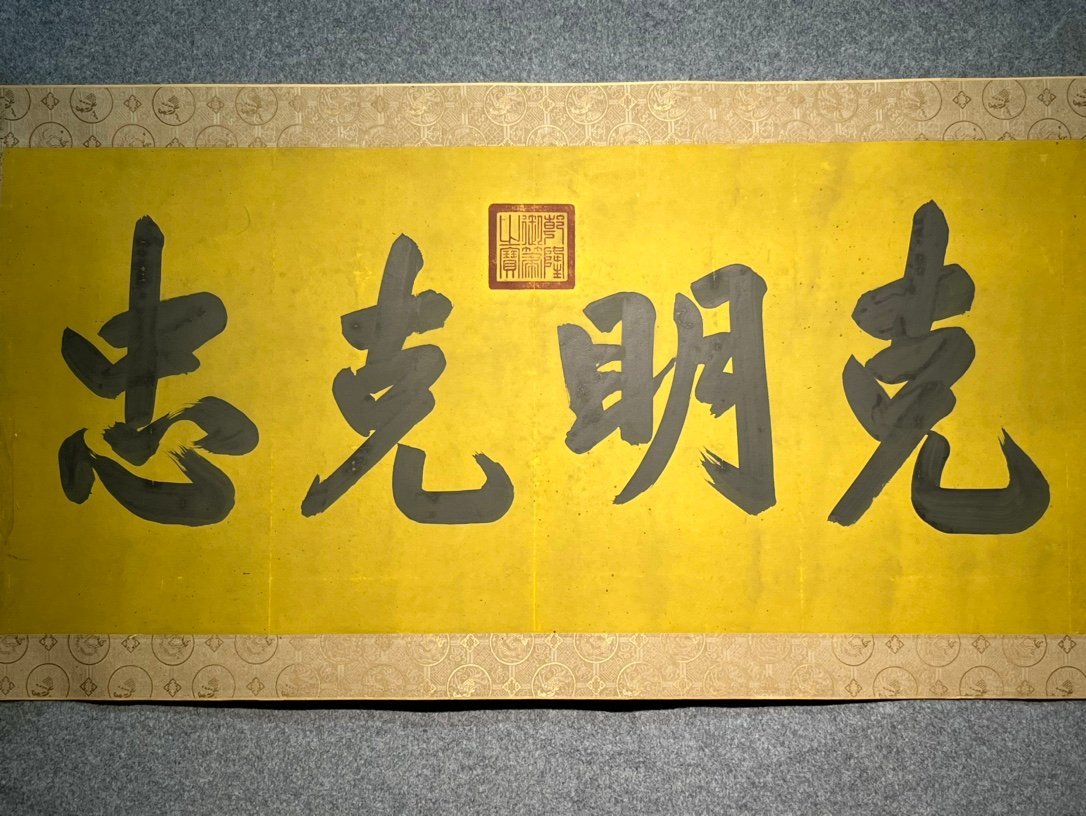 克明克忠
乾隆御筆之寶